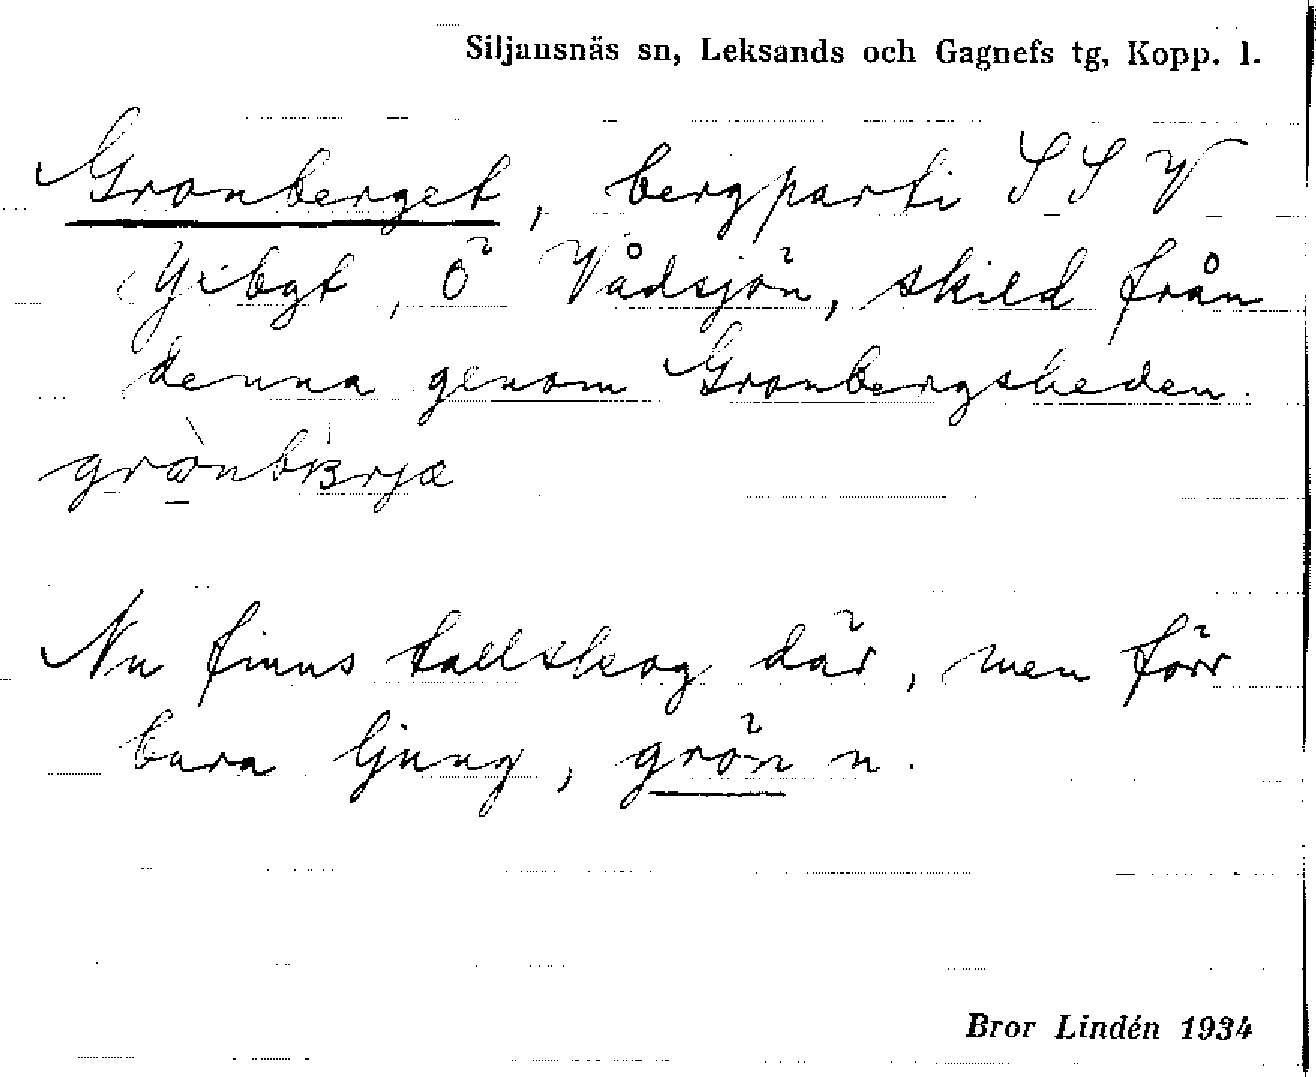 Siljansnäs sn, Leksands och Gagnefs tg, Kopp. l.
Gronberget, bergparti SSV
bygt, Ö Vådsjön, skild från
denna genom Gronbergsheden.
Nu finns tallskog där, men förr
bara ljung, grön n.
Bror Lindén 1934